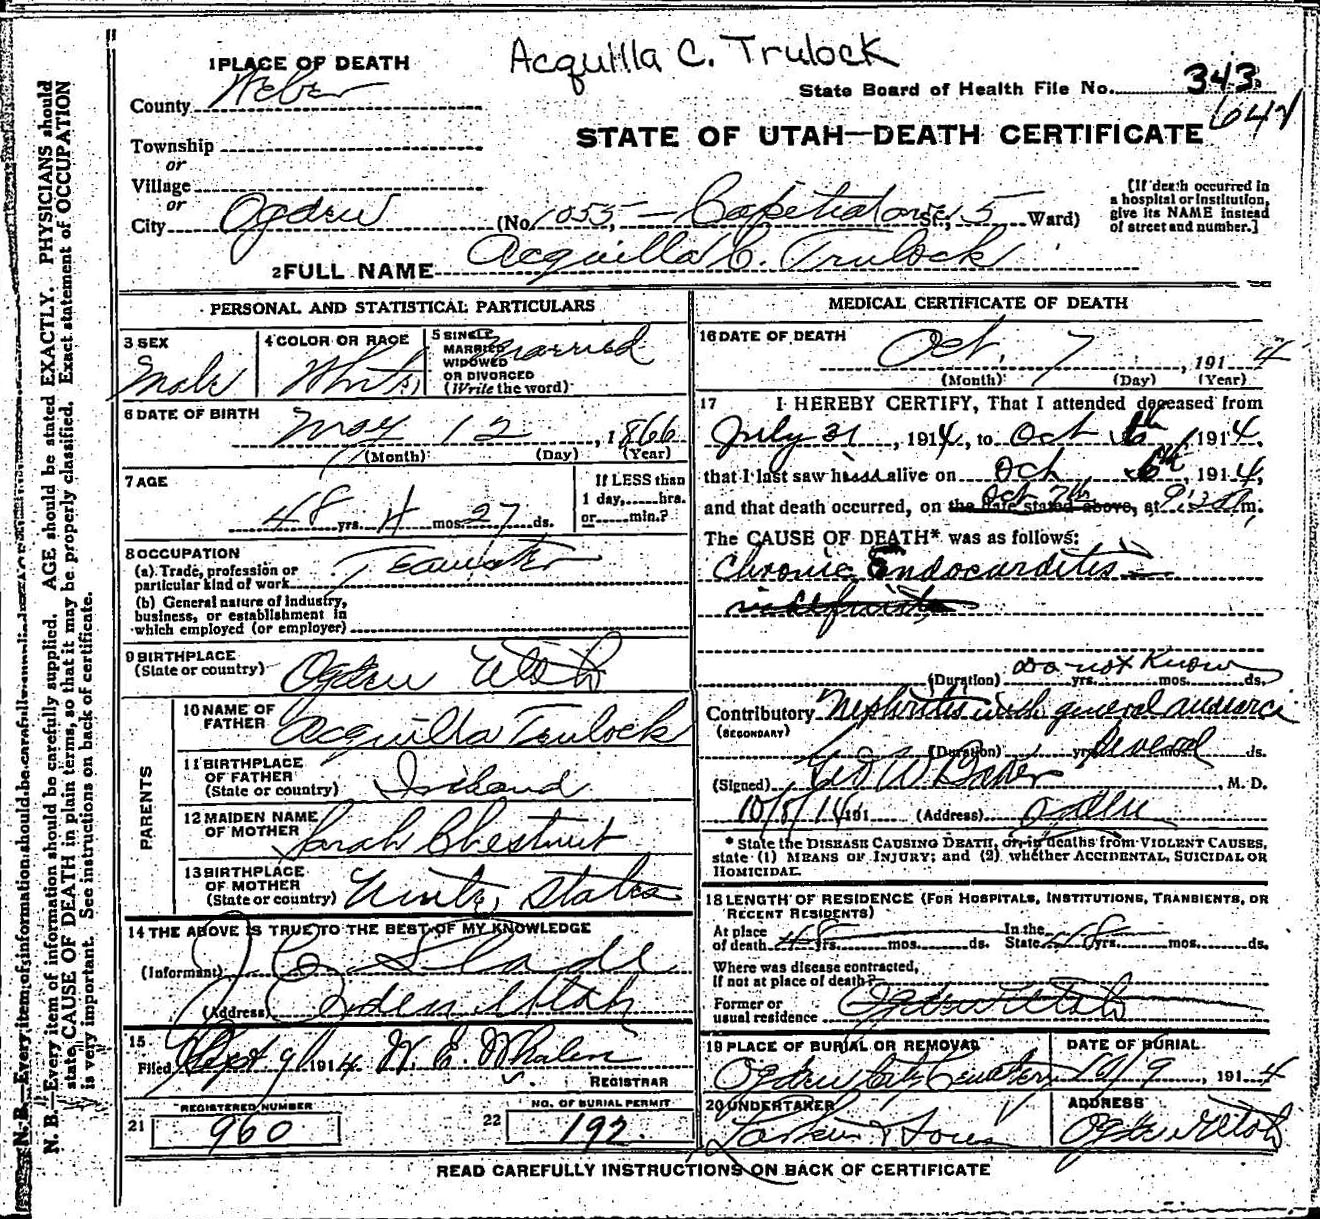 Acquilla C. Trulock
1 PLACE OF DEATH
County Weber
State Board of Health File No. 343
642
STATE OF UTAH—DEATH CERTIFICATE
Township
or
Village
or
City Ogden (No. 1055 — Capitol ave St.; 5 Ward)
[If death occurred in
a hospital or institution,
give its NAME instead
of street and number.]
2 FULL NAME Acquilla C. Trulock
PERSONAL AND STATISTICAL PARTICULARS
3 SEX
Male
4 COLOR OR RACE
White
5 SINGLE
MARRIED
WIDOWED
OR DIVORCED
(Write the word)
Married
6 DATE OF BIRTH
May 12, 1866
(Month) (Day) (Year)
7 AGE
48 yrs. 4 mos. 27 ds.
If LESS than
1 day,......hrs.
or......min.?
8 OCCUPATION
(a) Trade, profession or
particular kind of work Teamster
(b) General nature of industry,
business, or establishment in
which employed (or employer)
9 BIRTHPLACE
(State or country) Ogden Utah
PARENTS
10 NAME OF
FATHER Acquilla Trulock
11 BIRTHPLACE
OF FATHER
(State or country)
12 MAIDEN NAME
OF MOTHER Sarah Chestnut
13 BIRTHPLACE
OF MOTHER
(State or country) United States
14 THE ABOVE IS TRUE TO THE BEST OF MY KNOWLEDGE
(Informant) J C Slade
(Address) Ogden Utah
15
Filed 9, 1914 W. E. Whalen
REGISTRAR
REGISTERED NUMBER
21 960
NO. OF BURIAL PERMIT
22 192
MEDICAL CERTIFICATE OF DEATH
16 DATE OF DEATH
Oct. 7, 1914
(Month) (Day) (Year)
17 I HEREBY CERTIFY, That I attended deceased from
July 31, 1914, to Oct 6th, 1914,
that I last saw h alive on Oct 6th, 1914,
Oct 7th
and that death occurred, on the date stated above, at m.
The CAUSE OF DEATH* was as follows:
Chronic Endocarditis
do not know
(Duration) yrs. mos. ds.
Contributory Nephritis with general
(SECONDARY)
(Duration) yrs. several ds.
(Signed) Geo W Baker, M. D.
10/8/14 191 (Address) Ogden
* State the DISEASE CAUSING DEATH, or in deaths from VIOLENT CAUSES,
state (1) MEANS OF INJURY; and (2) whether ACCIDENTAL, SUICIDAL OR
HOMICIDAL.
18 LENGTH OF RESIDENCE (FOR HOSPITALS, INSTITUTIONS, TRANSIENTS, OR
RECENT RESIDENTS)
At place
of death 48 yrs. mos. ds. In the
State 48 yrs. mos. ds.
Where was disease contracted,
If not at place of death?
Former or
usual residence Ogden Utah
19 PLACE OF BURIAL OR REMOVAL
Ogden City Cemetery
DATE OF BURIAL
10/9, 1914
20 UNDERTAKER
Larkin & Sons
ADDRESS
Ogden Utah
READ CAREFULLY INSTRUCTIONS ON BACK OF CERTIFICATE
N. B.—Every item of information should be carefully supplied. AGE should be stated EXACTLY. PHYSICIANS should
state CAUSE OF DEATH in plain terms, so that it may be properly classified. Exact statement of OCCUPATION
is very important. See instructions on back of certificate.